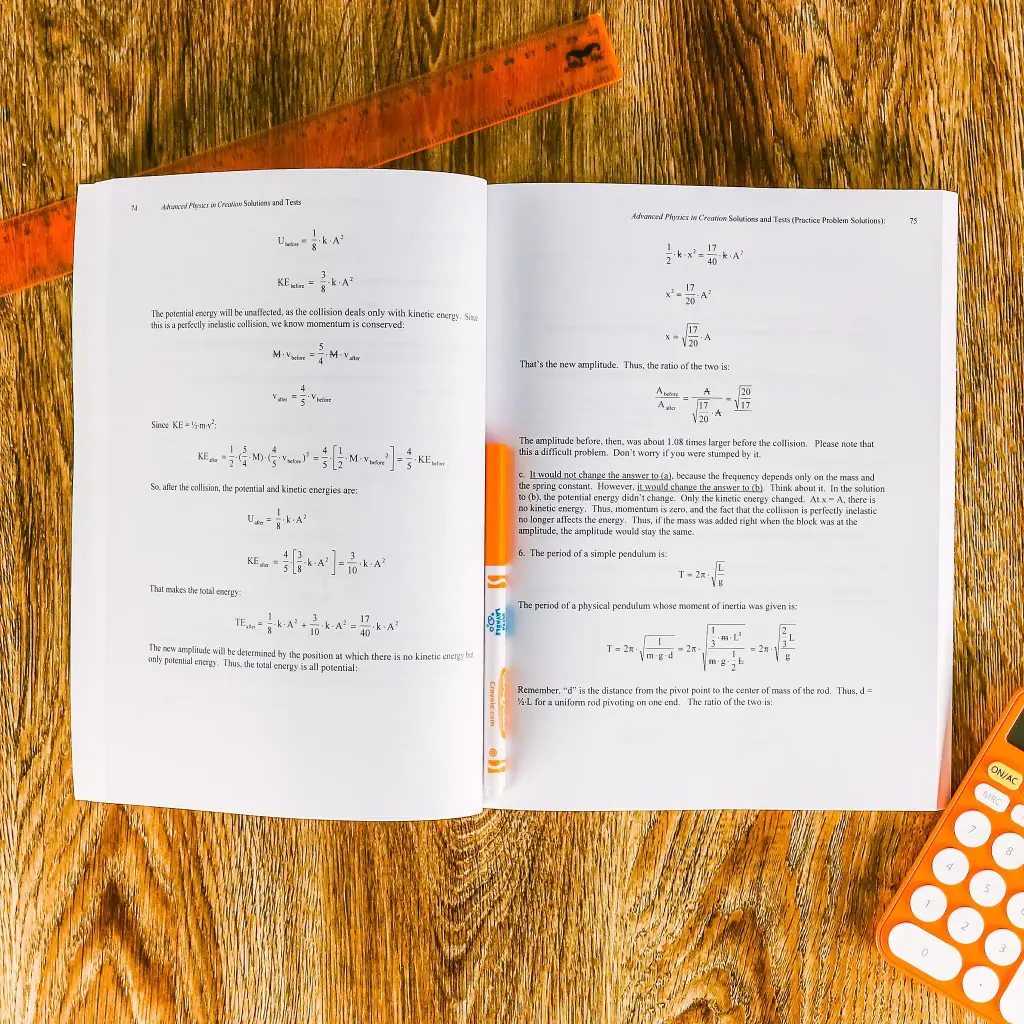 74 Advanced Physics in Creation Solutions and Tests
U before = 1/8 · k · A²
KE before = 3/8 · k · A²
The potential energy will be unaffected, as the collision deals only with kinetic energy. Since
this is a perfectly inelastic collision, we know momentum is conserved:
M · v before = 5/4 · M · v after
v after = 4/5 · v before
Since KE = ½·m·v²:
KE after = 1/2 · (5/4 · M) · (4/5 · v before)² = 4/5 · [1/2 · M · v before²] = 4/5 · KE before
So, after the collision, the potential and kinetic energies are:
U after = 1/8 · k · A²
KE after = 4/5 · [3/8 · k · A²] = 3/10 · k · A²
That makes the total energy:
TE after = 1/8 · k · A² + 3/10 · k · A² = 17/40 · k · A²
The new amplitude will be determined by the position at which there is no kinetic energy but
only potential energy. Thus, the total energy is all potential:
Advanced Physics in Creation Solutions and Tests (Practice Problem Solutions): 75
1/2 · k · x² = 17/40 · k · A²
x² = 17/20 · A²
x = √(17/20) · A
That's the new amplitude. Thus, the ratio of the two is:
A before / A after = A / (√(17/20) · A) = √(20/17)
The amplitude before, then, was about 1.08 times larger before the collision. Please note that
this a difficult problem. Don't worry if you were stumped by it.
c. It would not change the answer to (a), because the frequency depends only on the mass and
the spring constant. However, it would change the answer to (b). Think about it. In the solution
to (b), the potential energy didn't change. Only the kinetic energy changed. At x = A, there is
no kinetic energy. Thus, momentum is zero, and the fact that the collision is perfectly inelastic
no longer affects the energy. Thus, if the mass was added right when the block was at the
amplitude, the amplitude would stay the same.
6. The period of a simple pendulum is:
T = 2π · √(L/g)
The period of a physical pendulum whose moment of inertia was given is:
T = 2π · √(I / (m · g · d)) = 2π · √((1/3 · m · L²) / (m · g · 1/2 · L)) = 2π · √((2/3 L) / g)
Remember, "d" is the distance from the pivot point to the center of mass of the rod. Thus, d =
½·L for a uniform rod pivoting on one end. The ratio of the two is:
Crayola.com
ON/AC
MRC
7 8
4 5
1 2 3
0 ·